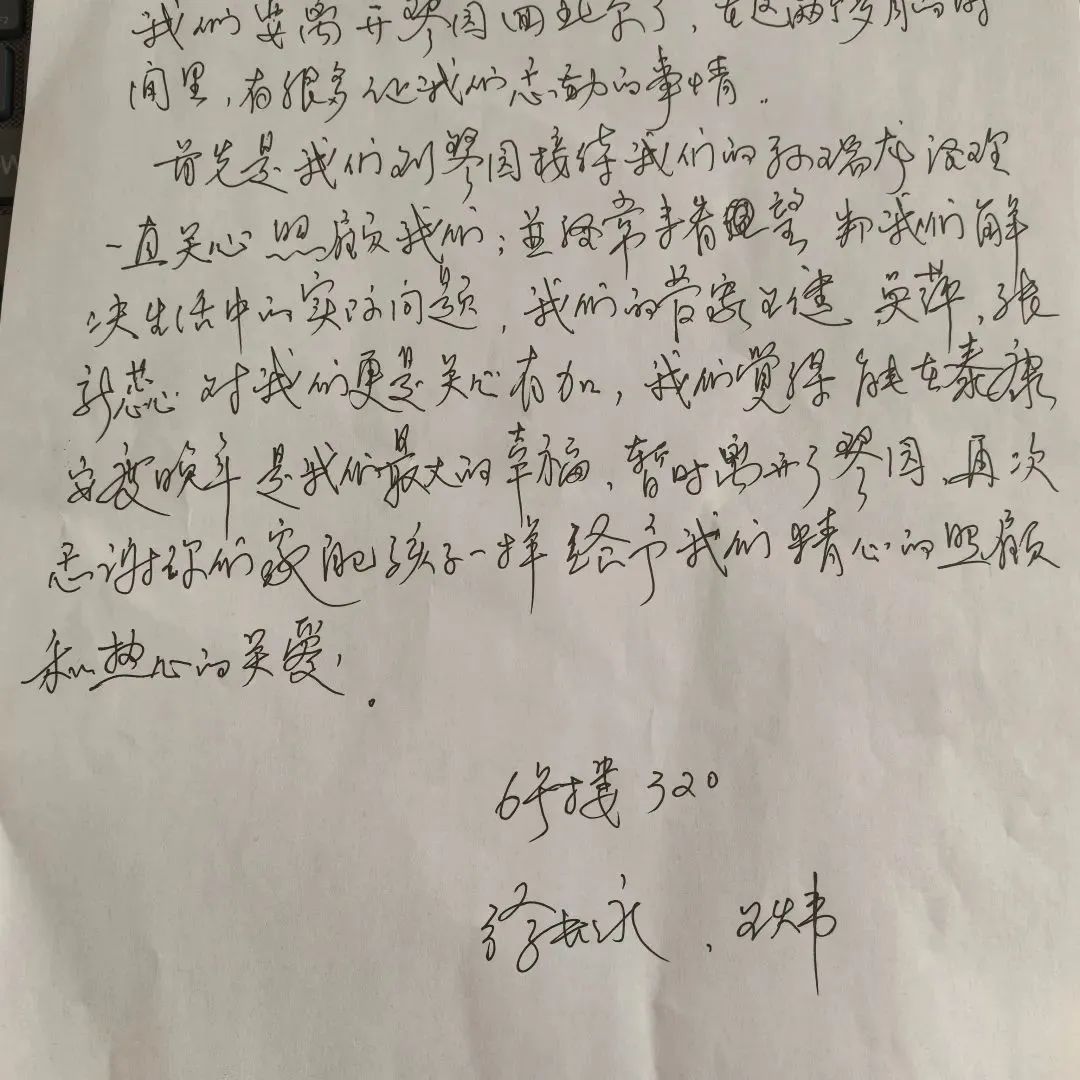 我们要离开琴园回北京了，在这两个多月的时
间里，有很多让我们感动的事情.
首先是我们到琴园接待我们的孙瑞龙经理
一直关心照顾我们；並经常来看望 帮我们解
决生活中的实际问题，我们的管家王健、吴萍，张
新蕊对我们更是关心有加，我们觉得能在泰康
安度晚年是我们最大的幸福，暂时离开了琴园，再次
感谢你们家的孩子一样给予我们精心的照顾
和热心的关爱，。
6号楼320
徐长永、王炜